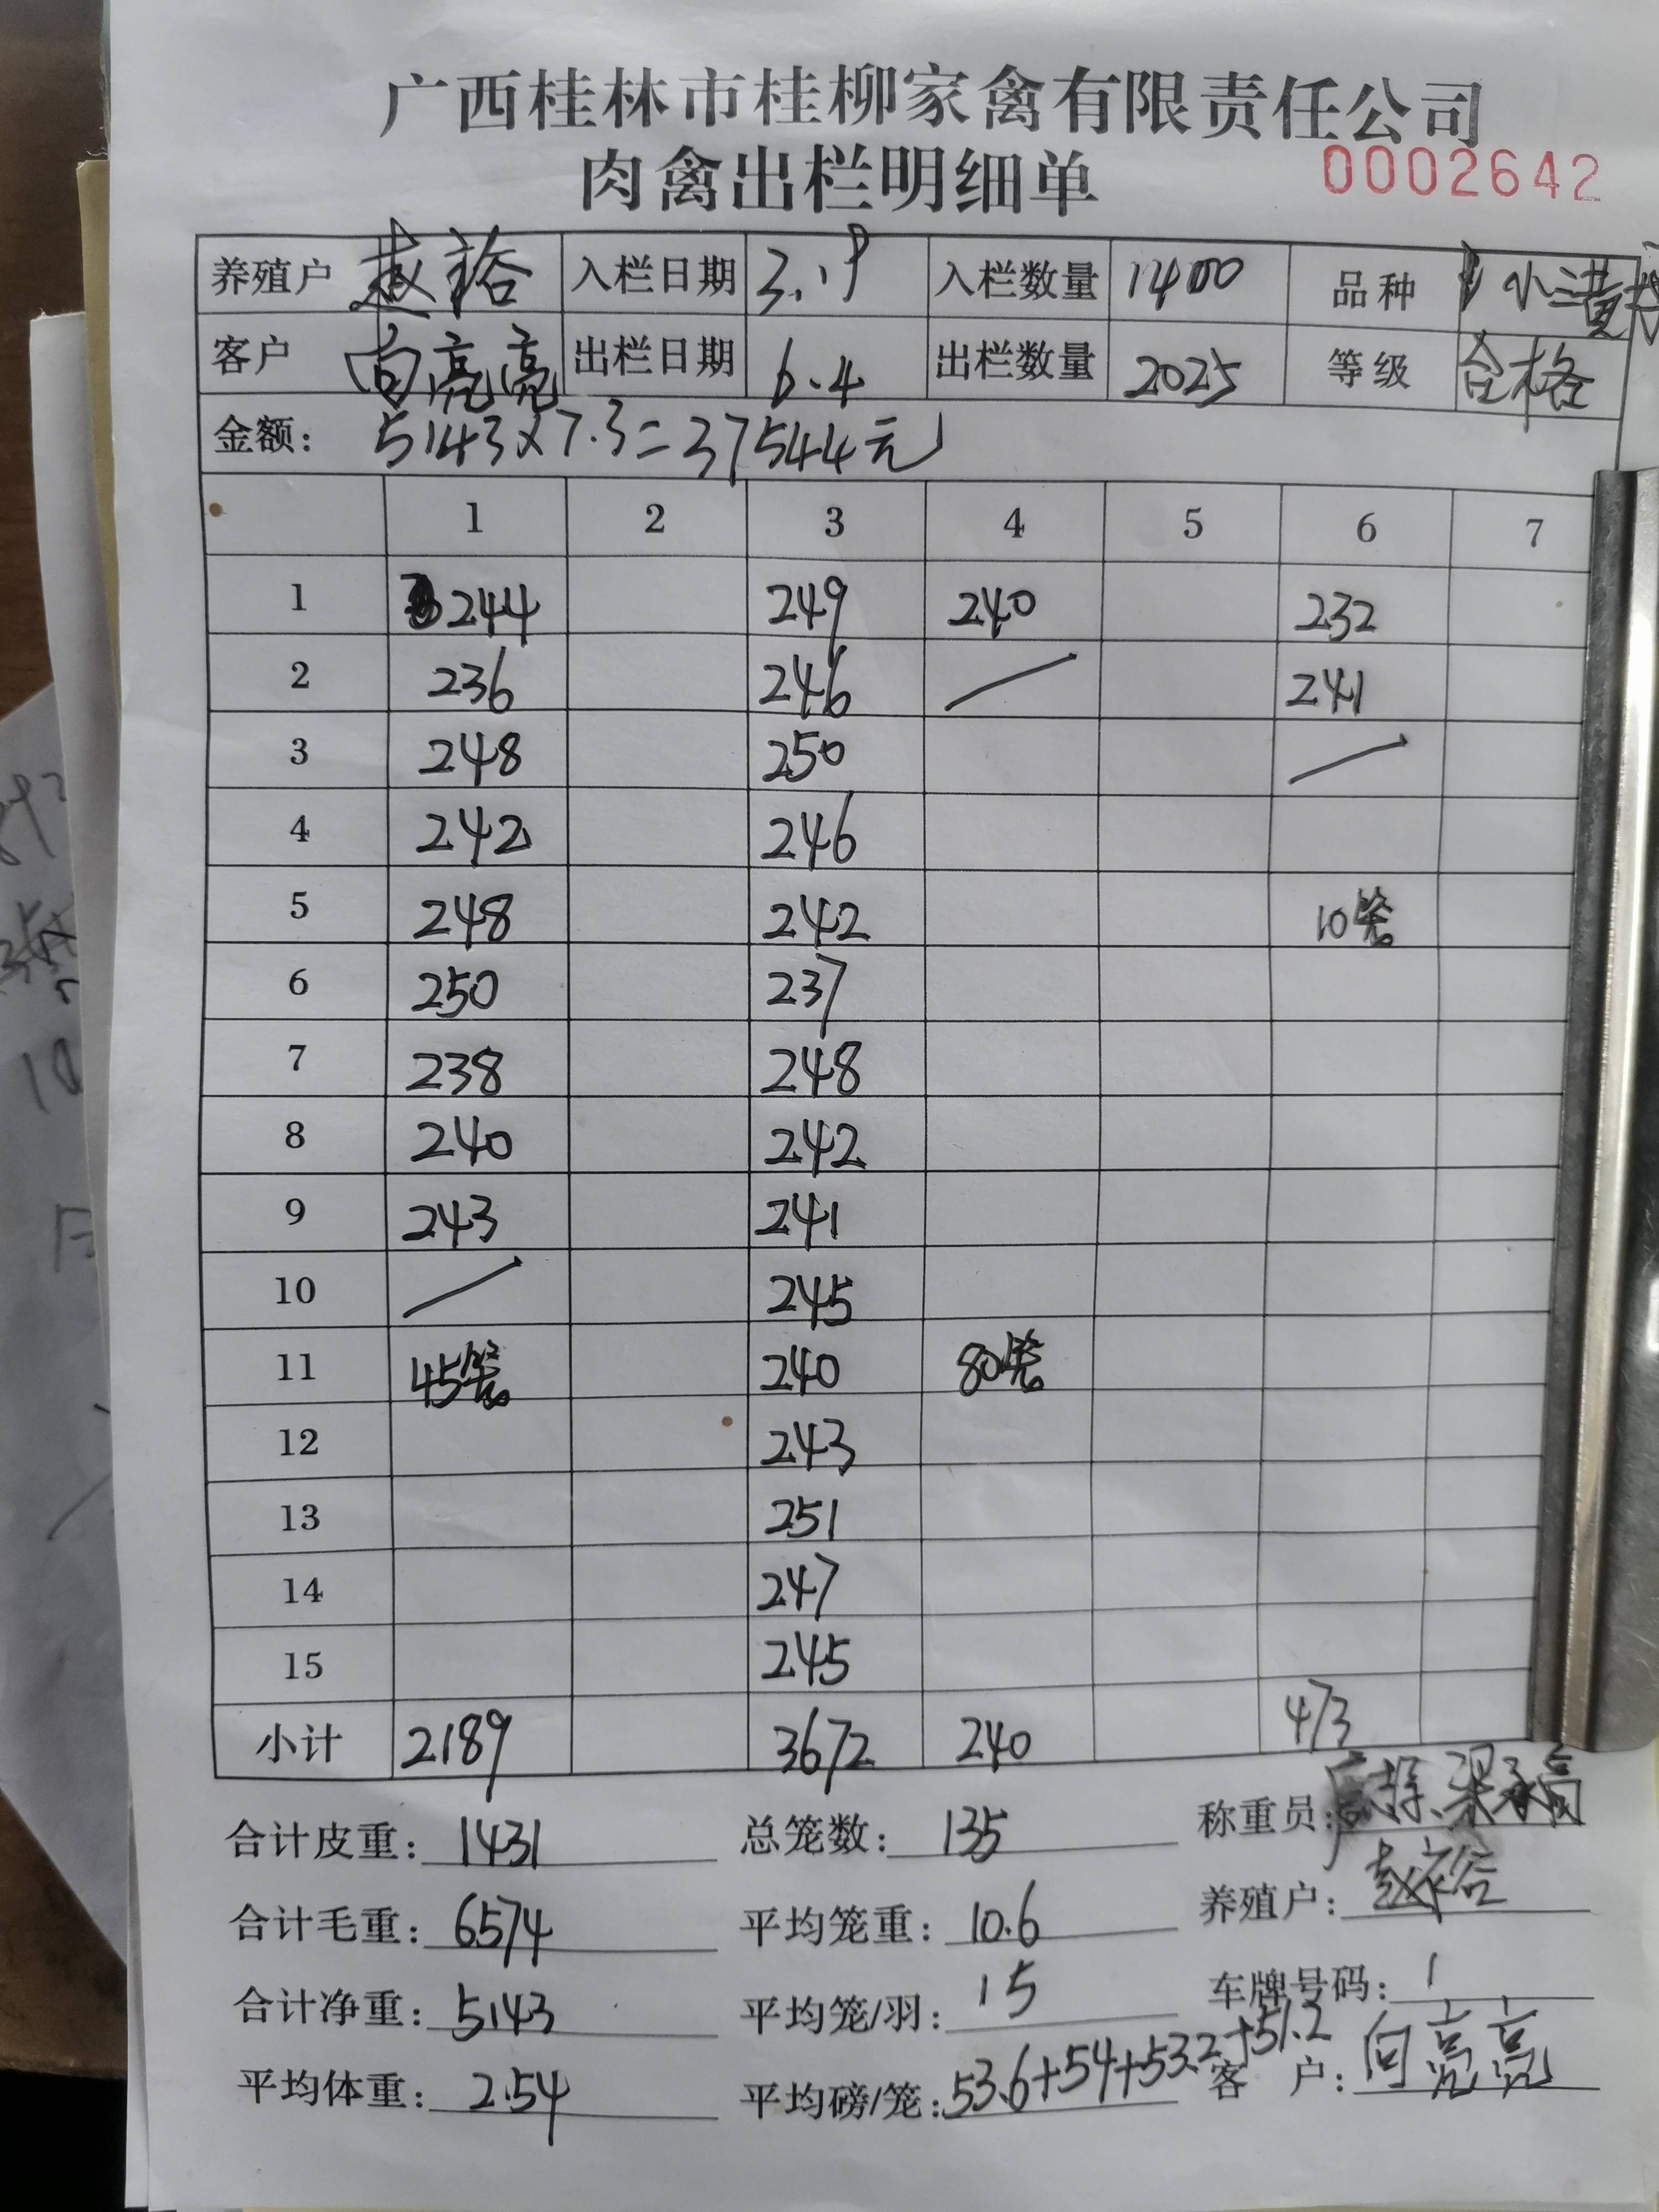 广西桂林市桂柳家禽有限责任公司
肉禽出栏明细单 0002642
养殖户 赵裕 入栏日期 3.19 入栏数量 1400 品种 小三黄
客户 向亮亮 出栏日期 6.4 出栏数量 2025 等级 合格
金额: 5143×7.3=37544元
1 2 3 4 5 6 7
1 244 249 240 232
2 236 246 / 241
3 248 250 /
4 242 246
5 248 242 10笼
6 250 237
7 238 248
8 240 242
9 243 241
10 / 245
11 45笼 240 80笼
12 243
13 251
14 247
15 245
小计 2189 3672 240 473
合计皮重: 1431 总笼数: 135 称重员: 梁承高
合计毛重: 6574 平均笼重: 10.6 养殖户: 赵裕
合计净重: 5143 平均笼/羽: 15 车牌号码: 1
平均体重: 2.54 平均磅/笼: 53.6+54+53.2+51.2 客户: 向亮亮